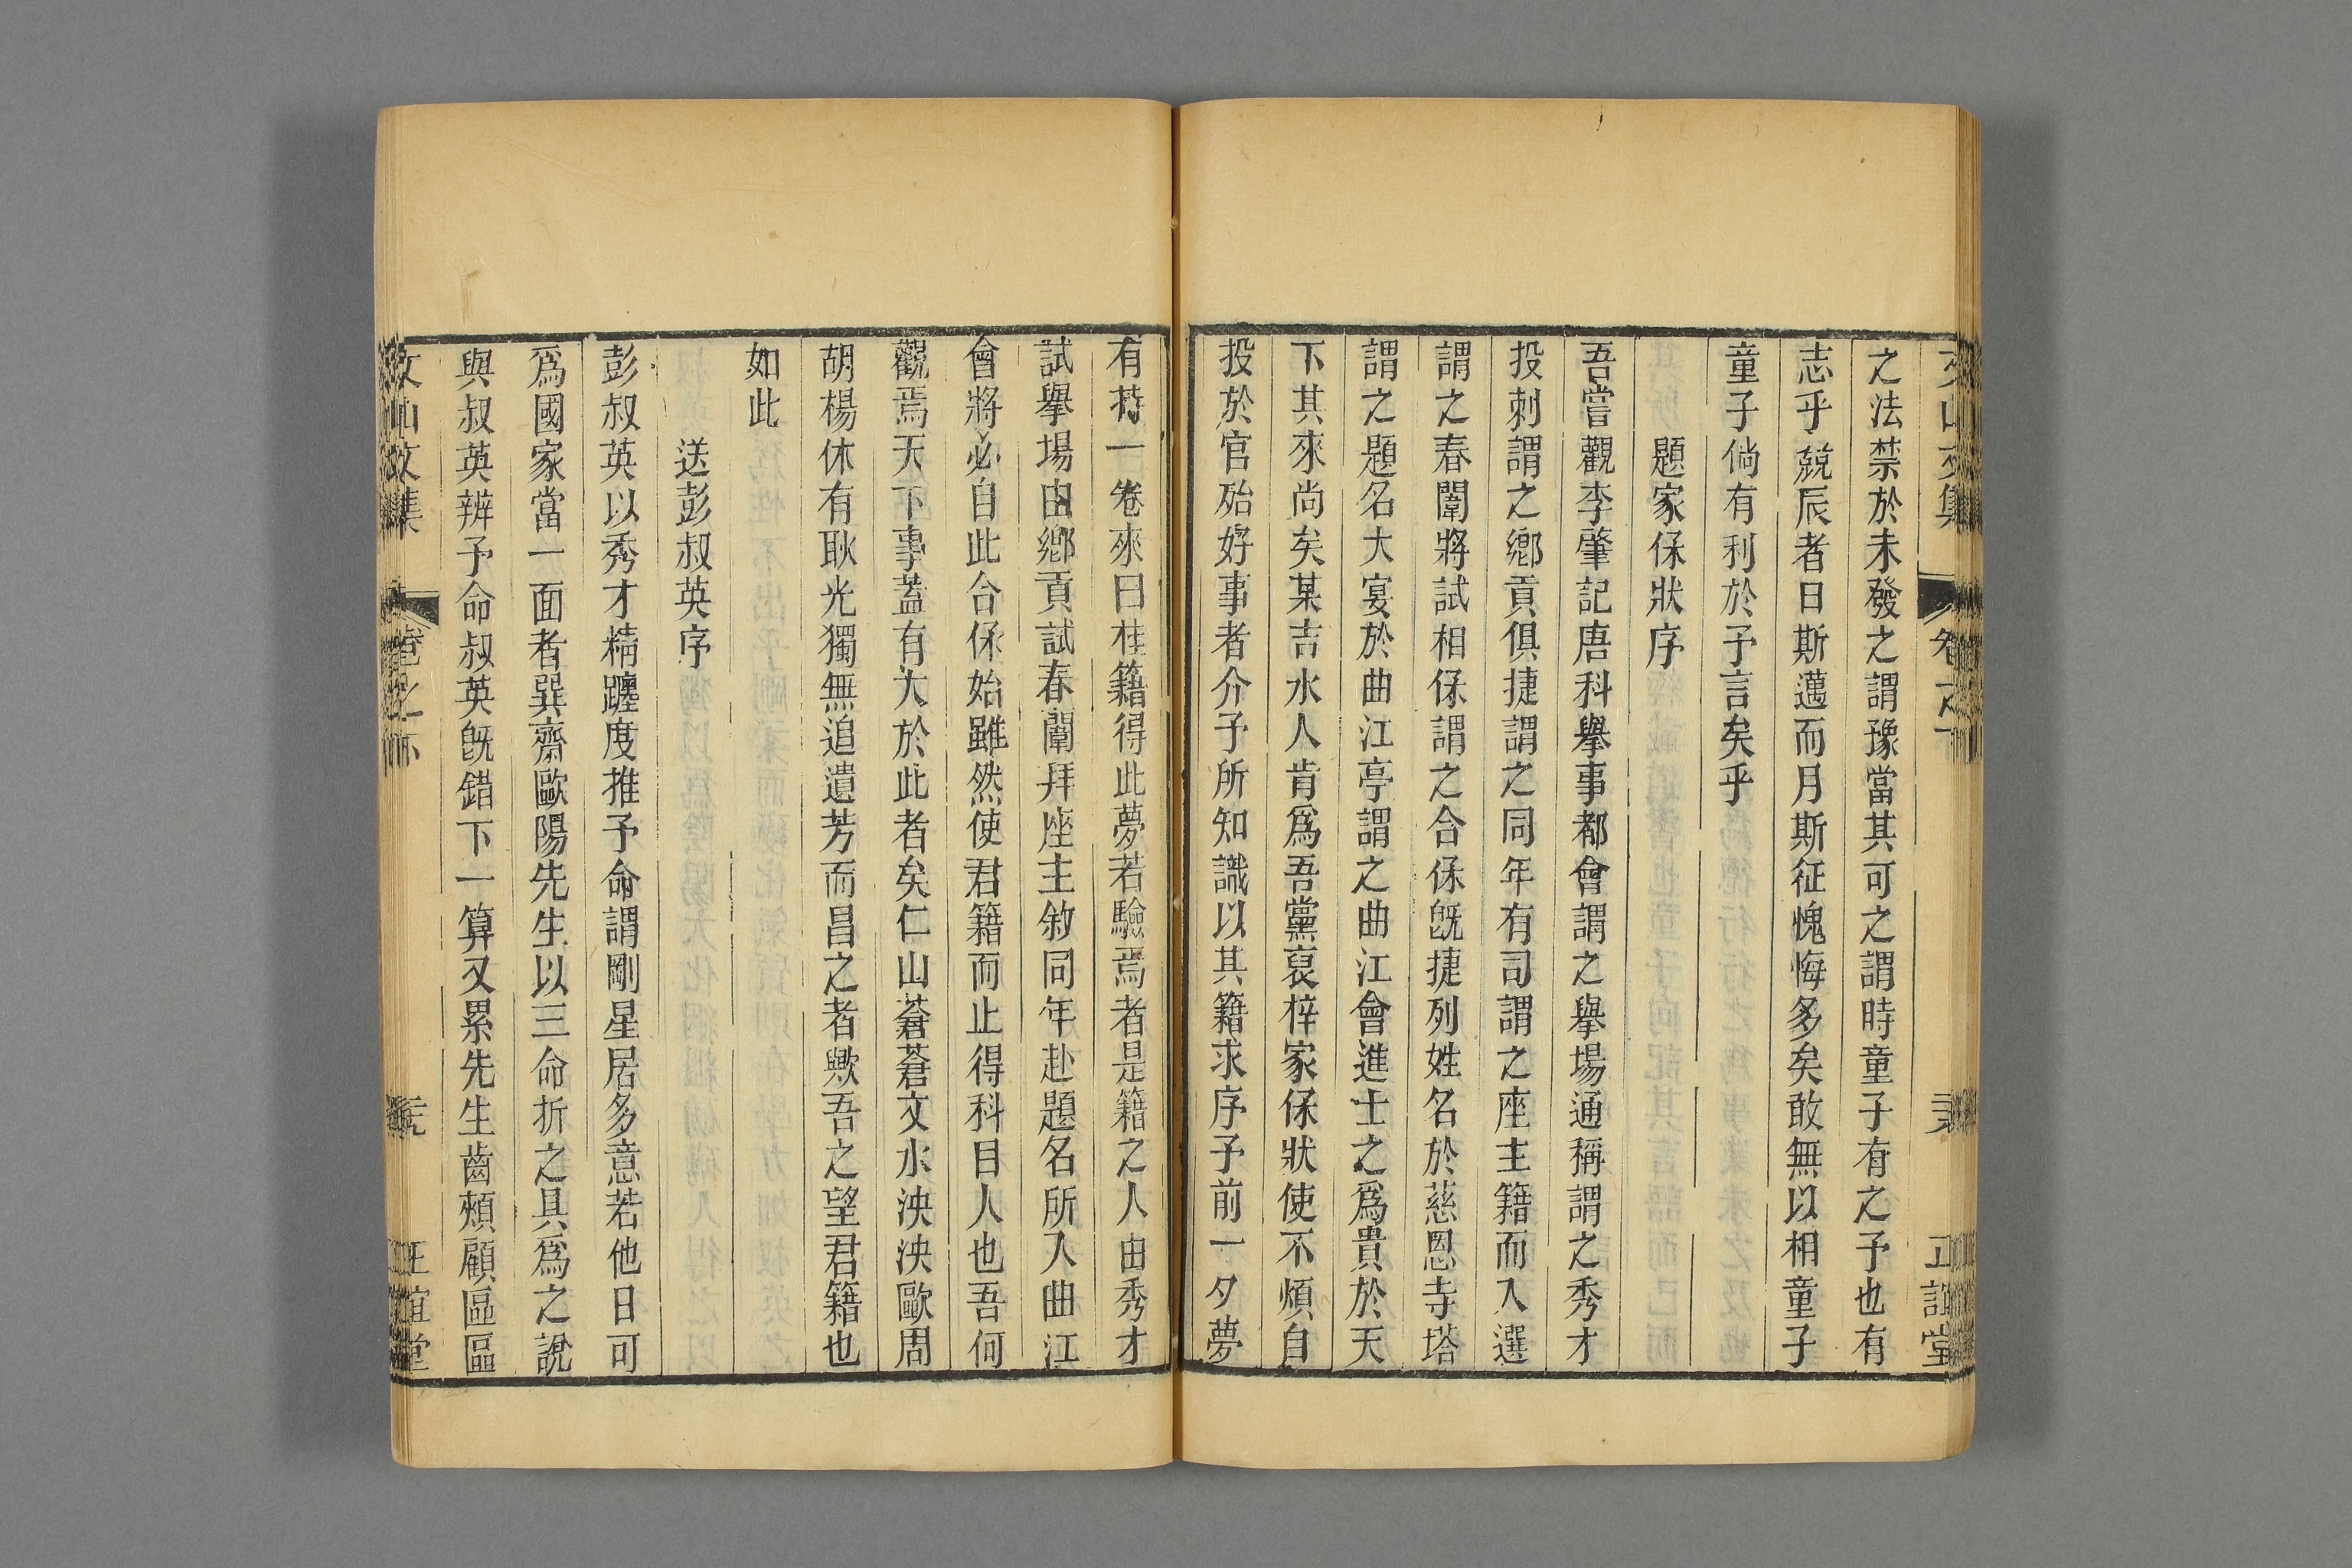 之法禁於未發之謂豫當其可之謂時童子有之予也有
志乎兢辰者日斯邁而月斯征愧悔多矣敢無以相童子
童子倘有利於予言矣乎
題家保狀序
吾嘗觀李肇記唐科舉事都會謂之舉場通稱謂之秀才
投刺謂之鄉貢俱捷謂之同年有司謂之座主籍而入選
謂之春闈將試相保謂之合保旣捷列姓名於慈恩寺塔
謂之題名大宴於曲江亭謂之曲江會進士之爲貴於天
下其來尚矣某吉水人肯爲吾黨裒梓家保狀使不煩自
投於官殆好事者介子所知識以其籍求序予前一夕夢
有持一卷來曰桂籍得此夢若驗焉者是籍之人由秀才
試舉場由鄉貢試春闈拜座主敘同年赴題名所入曲江
會將必自此合保始雖然使君籍而止得科目人也吾何
觀焉天下事蓋有大於此者矣仁山蒼蒼文水泱泱歐周
胡楊休有耿光獨無追遺芳而昌之者歟吾之望君籍也
如此
送彭叔英序
彭叔英以秀才精躔度推予命謂剛星居多意若他日可
爲國家當一面者巽齋歐陽先生以三命折之具爲之說
與叔英辨予命叔英旣錯下一算又累先生齒頰顧區區
文山文集
卷之下
正誼堂